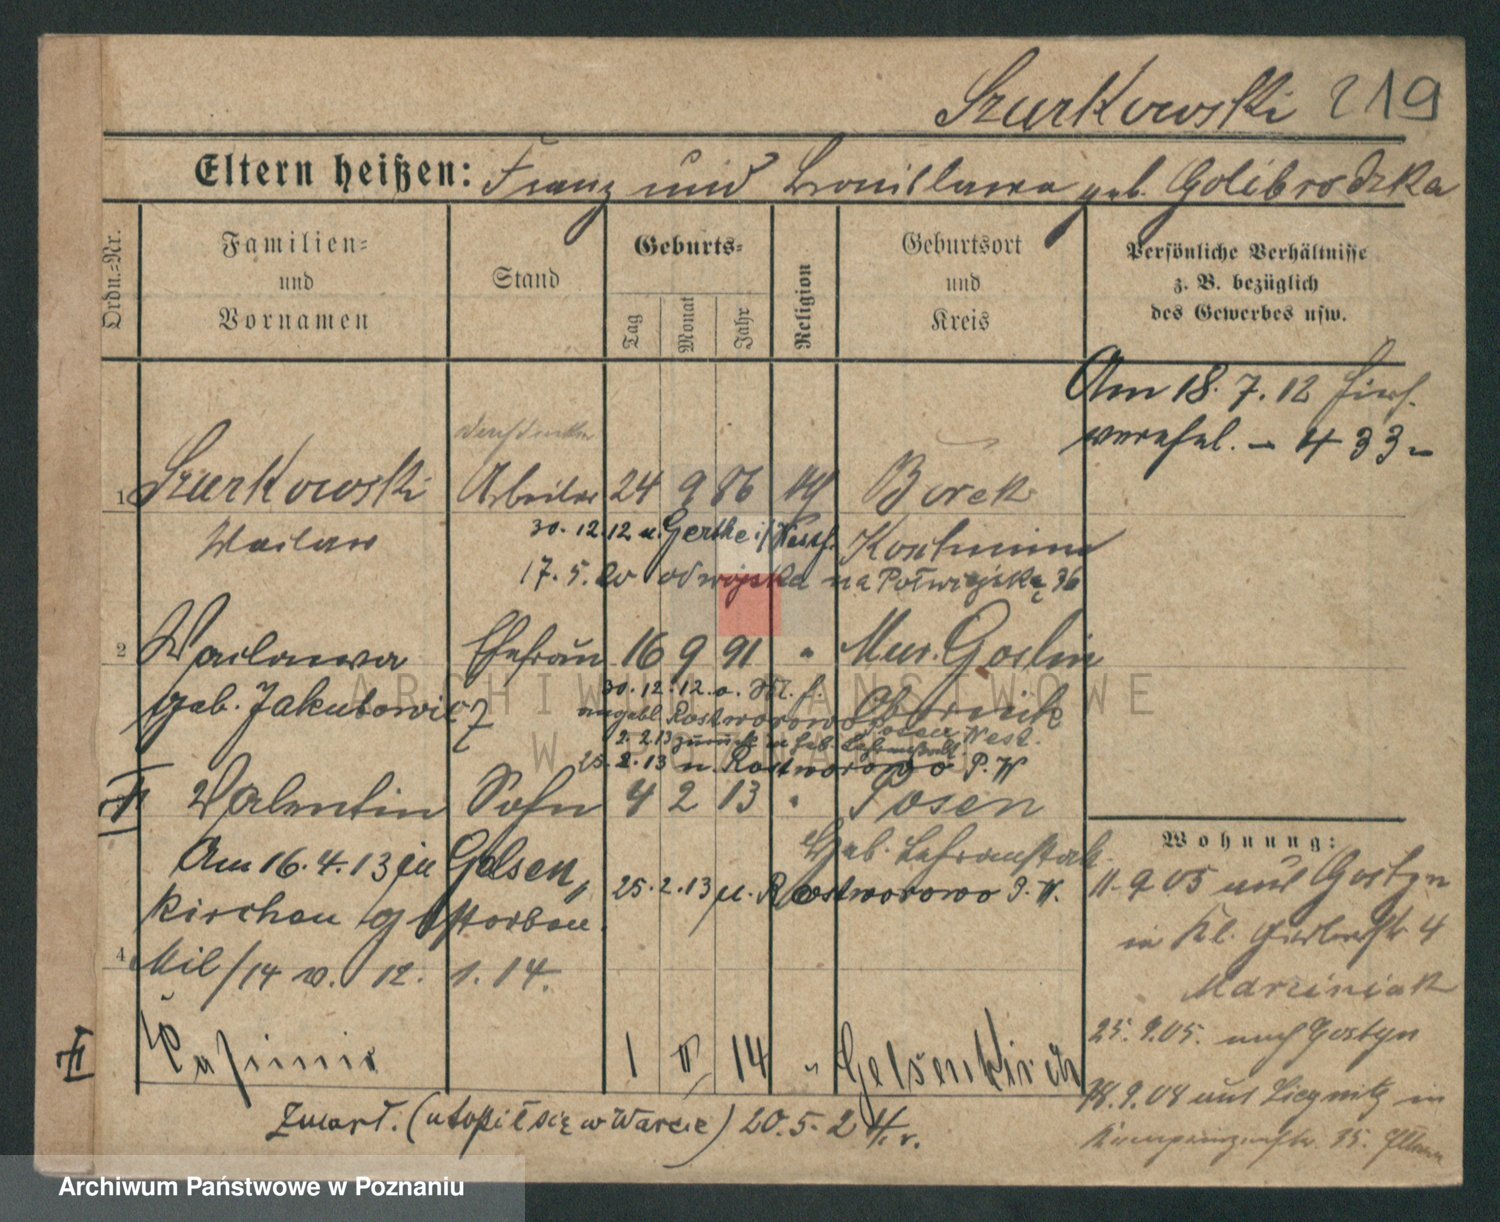 Szurkowski 219
Eltern heißen: Franz und Bronislawa geb. Golibrodzka
Ordn.=Nr.
Familien=
und
Vornamen
Stand
Geburts=
Tag
Monat
Jahr
Religion
Geburtsort
und
Kreis
Persönliche Verhältnisse
z. B. bezüglich
des Gewerbes usw.
Am 18. 7. 12 hier
verehel. – 433 –
1 Szurkowski Arbeiter 24 9 86 Borek
Waclaw 30. 12. 12 n. Gerthe i/Westf. Koschmin
17. 5. 20 od wojska na Półwiejską 36
2 Waclawa Ehefrau 16 9 91 " Mur. Goslin
geb. Jakubowicz 30. 12. 12. Obornik
angebl. Rostworowo Posen West.
2. 2. 13 zurück in Heb. Lehranstalt
25. 2. 13 n. Rostworowo P. W
Valentin Sohn 4 2 13 " Posen
Heb. Lehranstalt
Am 16. 4. 13 in Gelsen 25. 2. 13 n. Rostworowo P. W.
kirchen gestorben.
4 Mil/14 v. 12. 1. 14.
II Kasimir 1 II 14 " Gelsenkirch
Zmarł. (utopił się w Warcie) 20. 5. 24 r.
Wohnung:
11. 9 05 aus Gostyn
in Kl. Gerberstr 4
Marciniak
25. 9. 05. nach Gostyn
18. 9. 08 aus Liegnitz in
ARCHIWUM PAŃSTWOWE
W POZNANIU
Archiwum Państwowe w Poznaniu